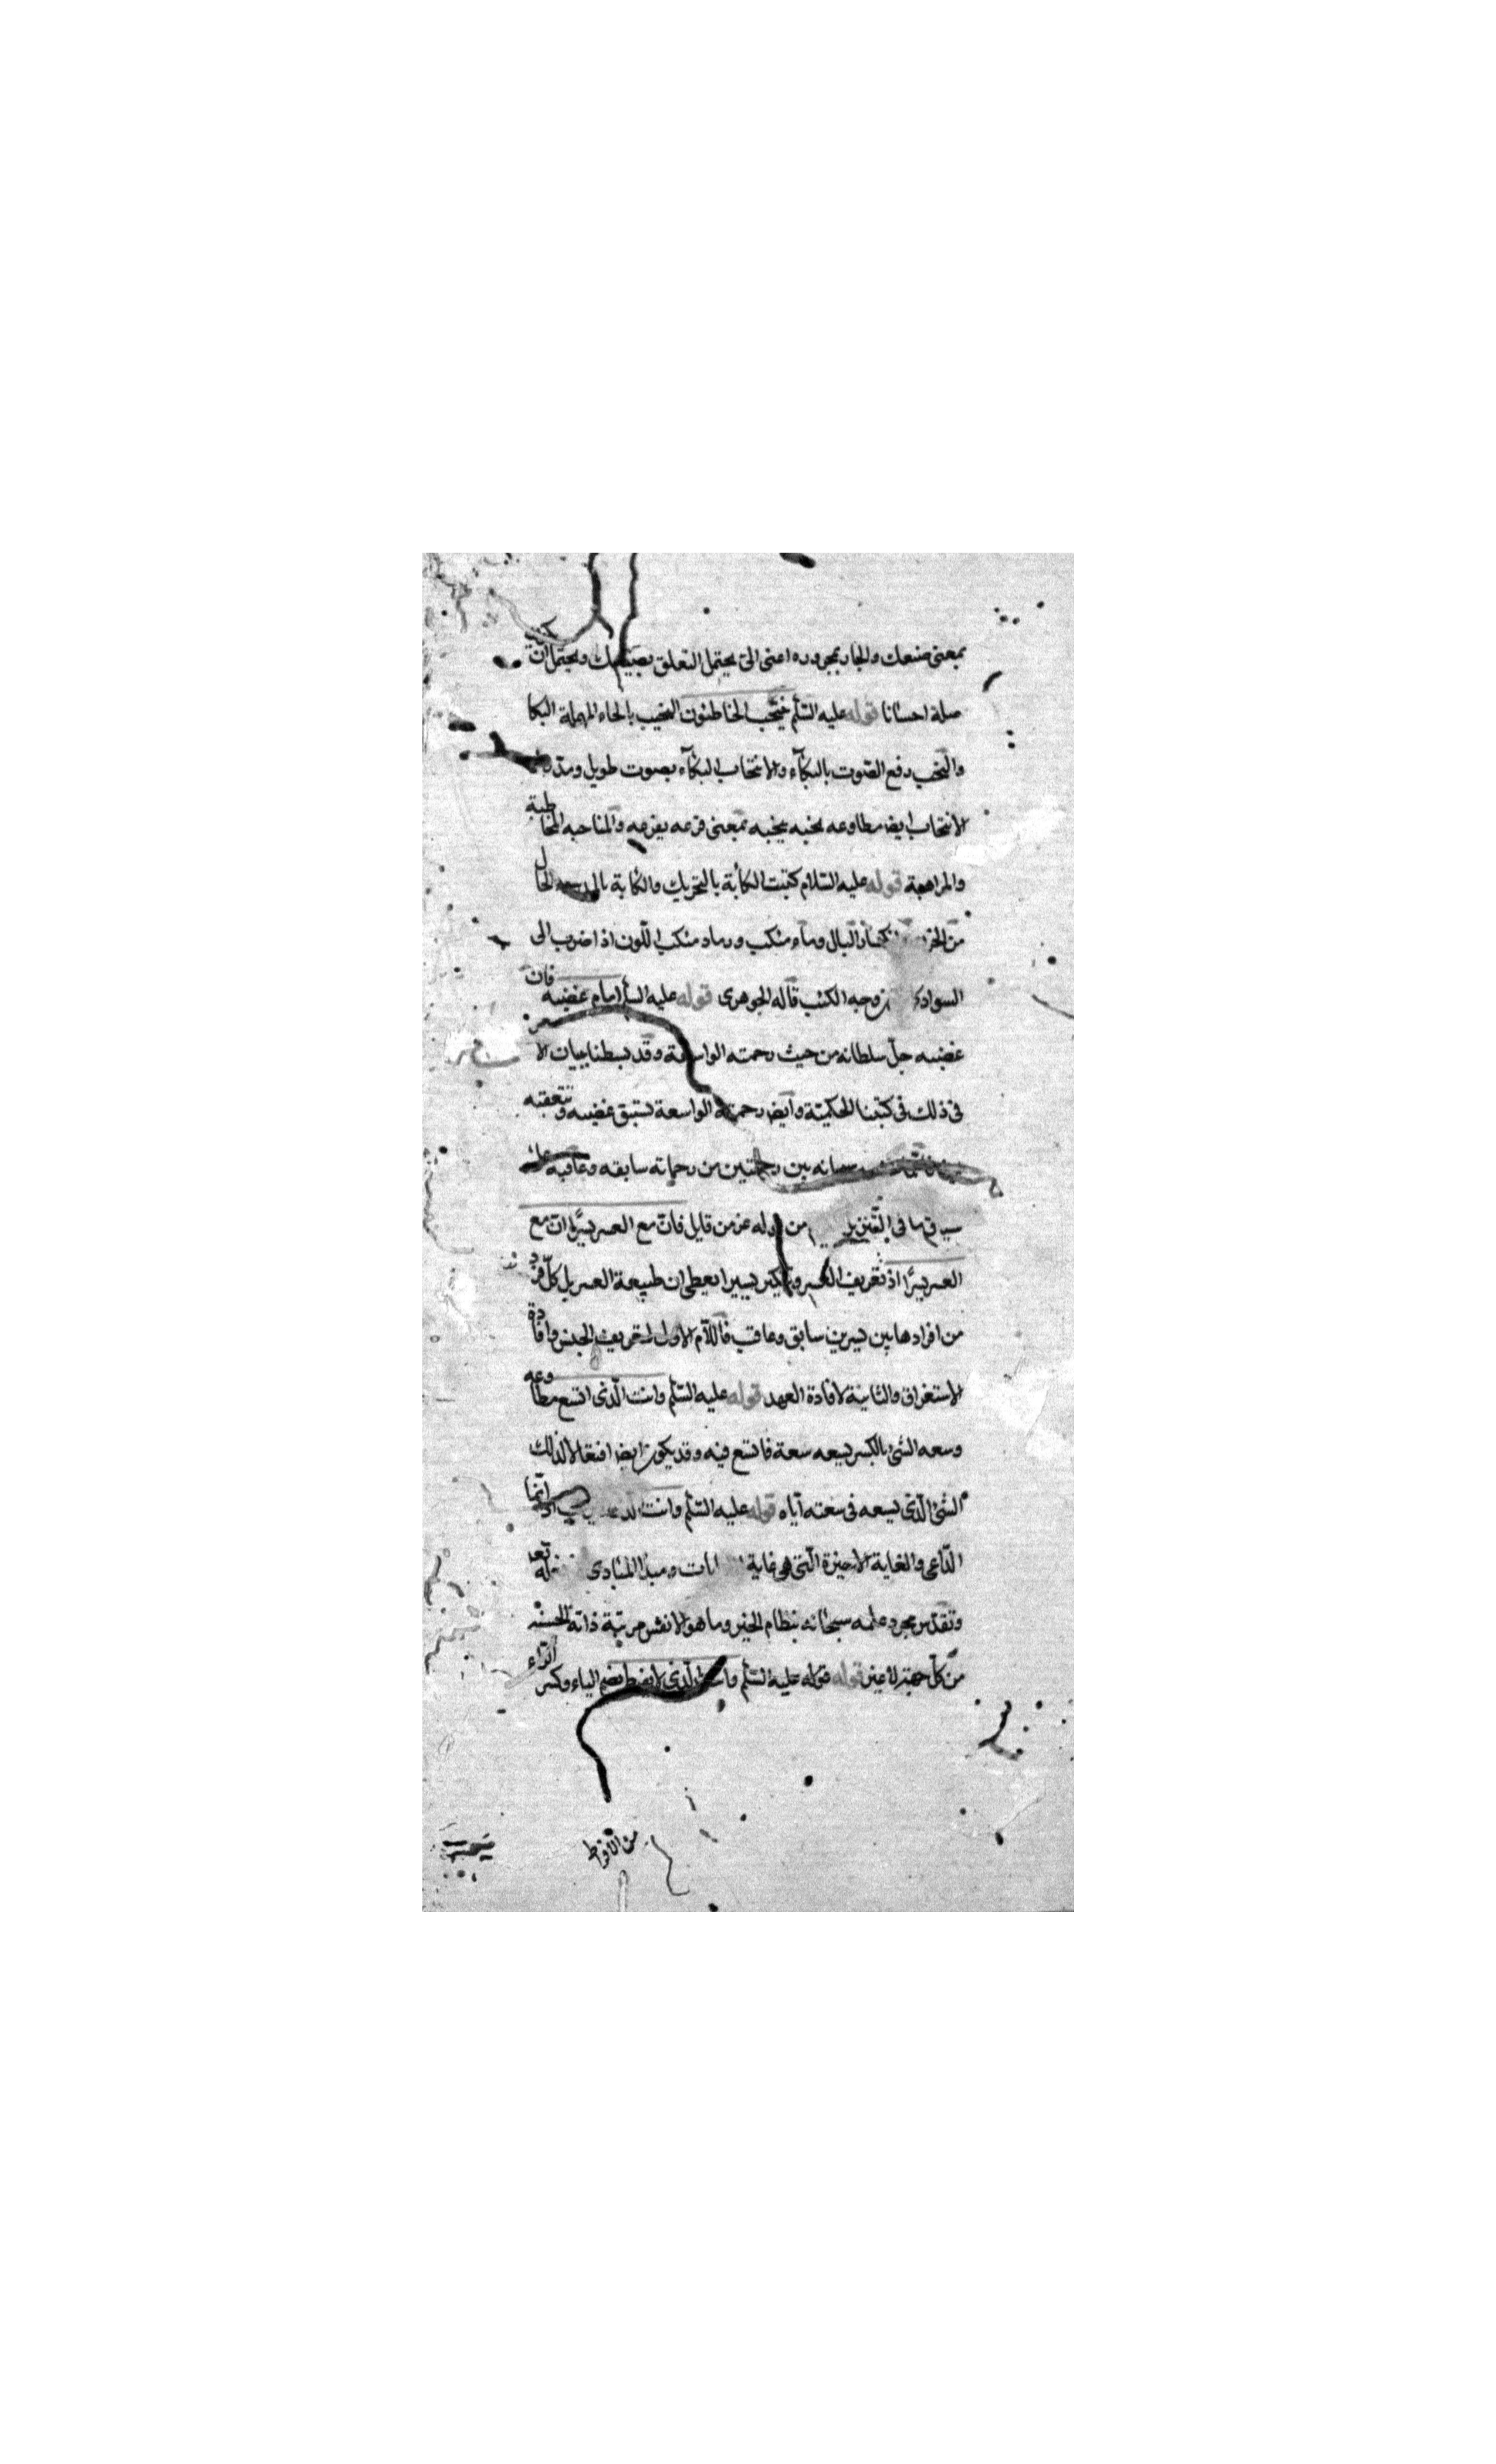 بمعنى صنيعك والجار بمجروره اعنى الىّ يحتمل التعلق بصنيعك ويحتمل ان يكون
صلة احسانا قوله عليه السّلم ينتحب الخاطئون النحيب بالحاء المهملة البكا
والنّحب رفع الصّوت بالبكآء والانتحاب البكآء بصوت طويل ومدّ
الانتحاب ايضا مطاوعه نحبه ينحبه بمعنى قرعه يقرعه والمناحبه المخاطبة
والمراهنة قوله عليه السّلام كئبت الكأبة بالتحريك والكآبة بالمد سوء الحال
من الحزن وانكسار البال وماء مكتئب ورماد مكتئب اللّون اذا ضرب الى
السواد وجه الكئب قاله الجوهرى قوله عليه السلم امام غضبه فانّ
غضبه جلّ سلطانه من حيث رحمته الواسعة وقد بسطنا بيان الامر
فى ذلك فى كتبنا الحكميّة وايضا رحمته الواسعة تستبق غضبه وتتعقبه
سبحانه بين رحمتين من رحماته سابقه وعاقبه على
سياقها فى التّنزيل من قوله عز من قايل فانّ مع العسر يسرًا انّ مع
العسر يسرًا اذ تعريف العسر وتنكير يسيرا يعطى ان طبيعة العسر بل كلّ فرد
من افرادها بين يسرين سابق وعاقب فاللّام الاولى لتعريف الجنس وافادة
الاستغراق والثانية لافادة العهد قوله عليه السّلم وانت الّذى اتسع مطاوعه
وسعه الشئ بالكسر يسعه سعة فاتسع فيه وقد يكون ايضا افتعالا لذلك
الشئ الّذى يسعه فى سعته ايّاه قوله عليه السّلم وانت الّذى انّما
الدّاعى والغاية الاخيرة الّتى هى غاية الغايات ومبدأ المبادى تعـ
وتقدّس مجرد علمه سبحانه بنظام الخير وما هو الا نفس مرتبة ذاته الحقّه
من كلّ جهة لا غير قوله قوله عليه السّلم وانت الّذى لا يفرط بضم الياء وكسر الرّاء
من الافراط